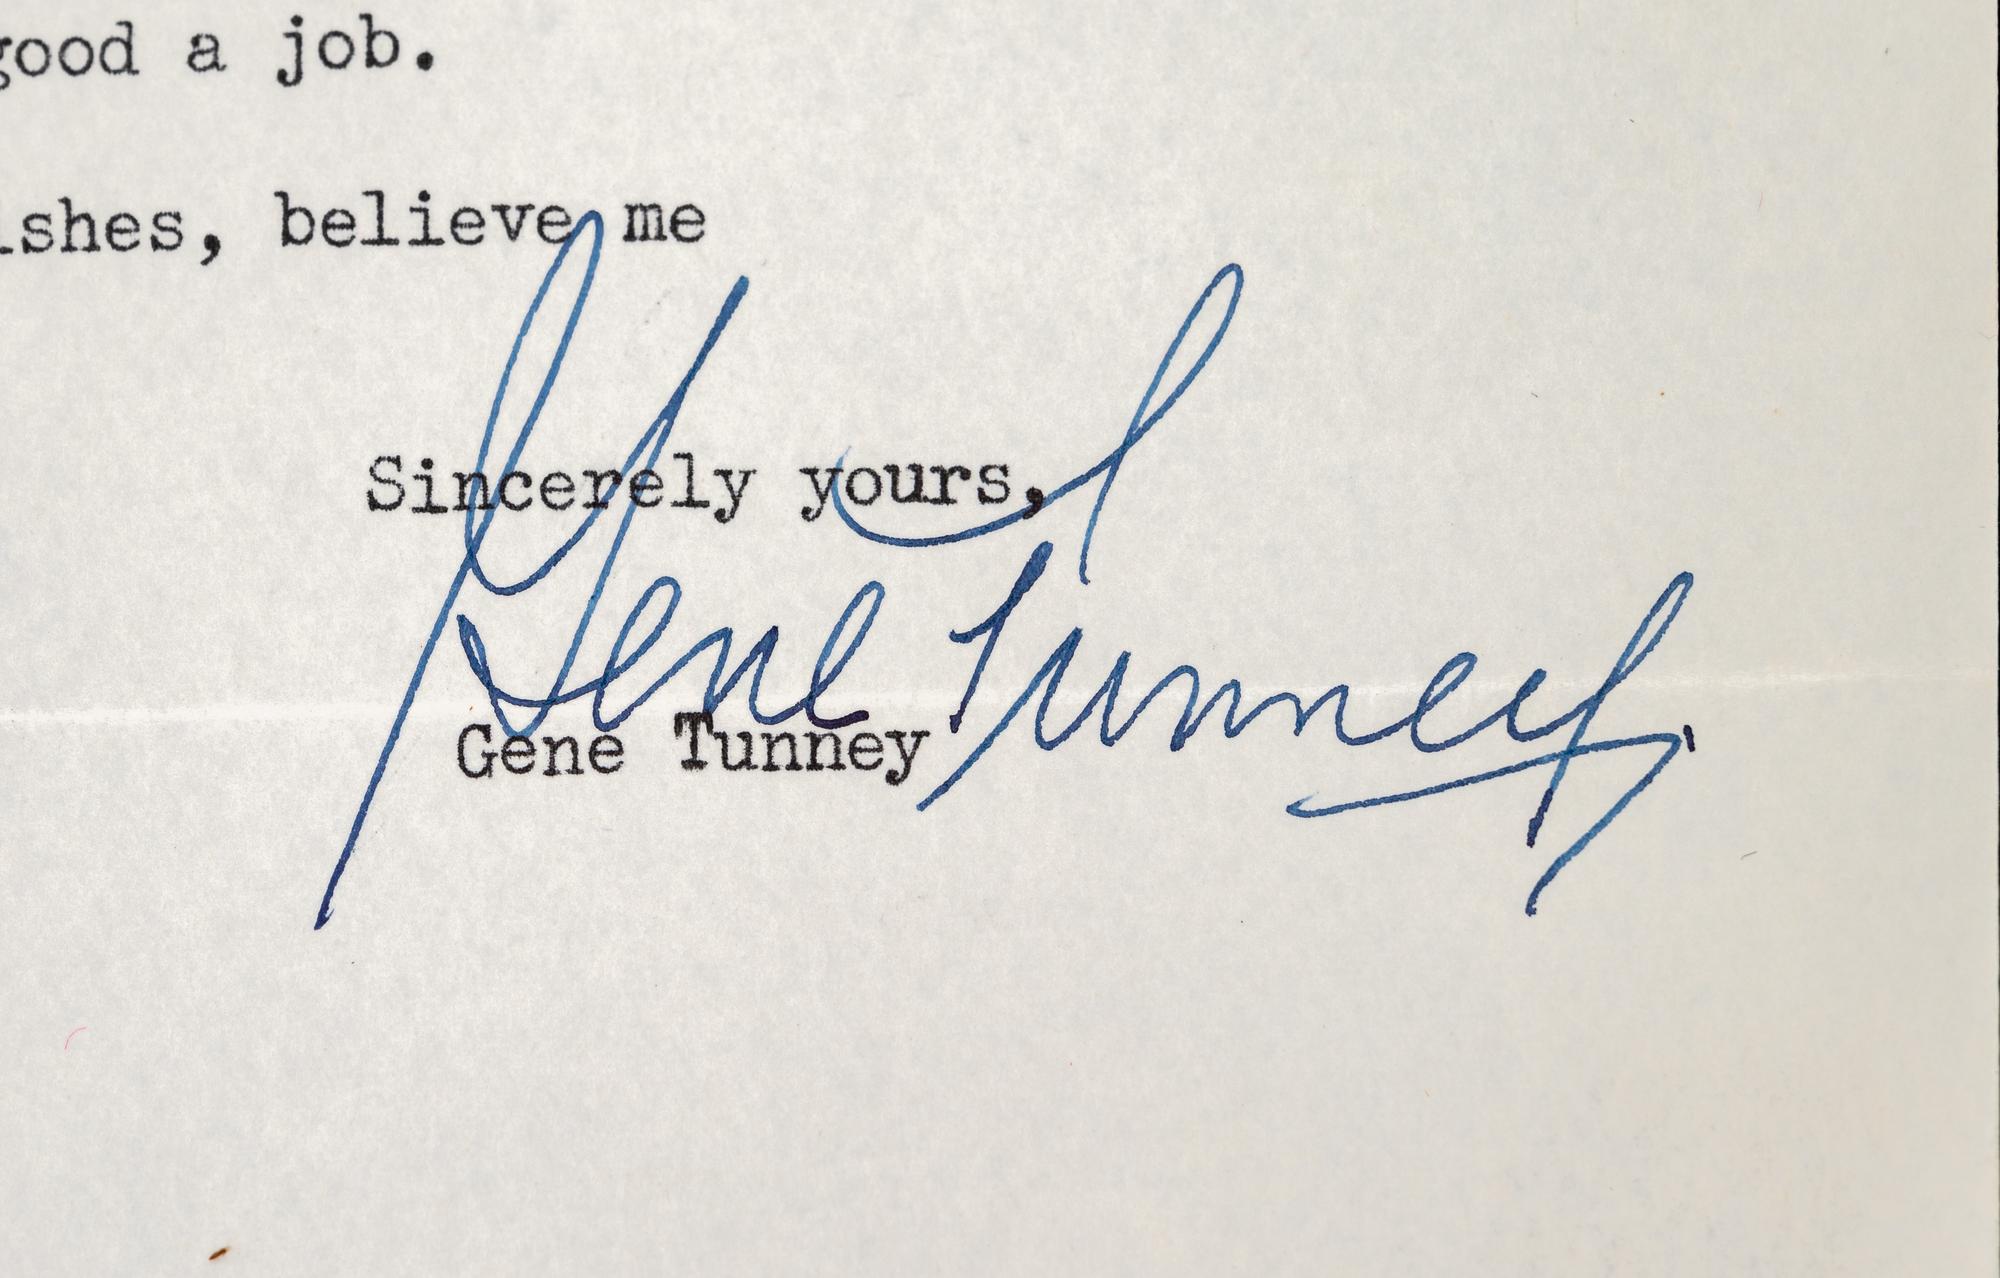 good a job.
ishes, believe me
Sincerely yours,
Gene Tunney
Gene Tunney